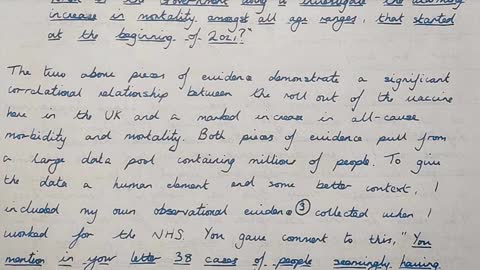 is the Government doing to investigate the alarming
increase in mortality amongst all age ranges, that started
at the beginning of 2021?"
The two above pieces of evidence demonstrate a significant
correlational relationship between the roll out of the vaccine
here in the UK and a marked increase in all-cause
morbidity and mortality. Both pieces of evidence pull from
a large data pool containing millions of people. To give
the data a human element and some better context, I
included my own observational evidence ③ collected when I
worked for the NHS. You gave comment to this, "You
mention in your letter 38 cases of people seemingly having